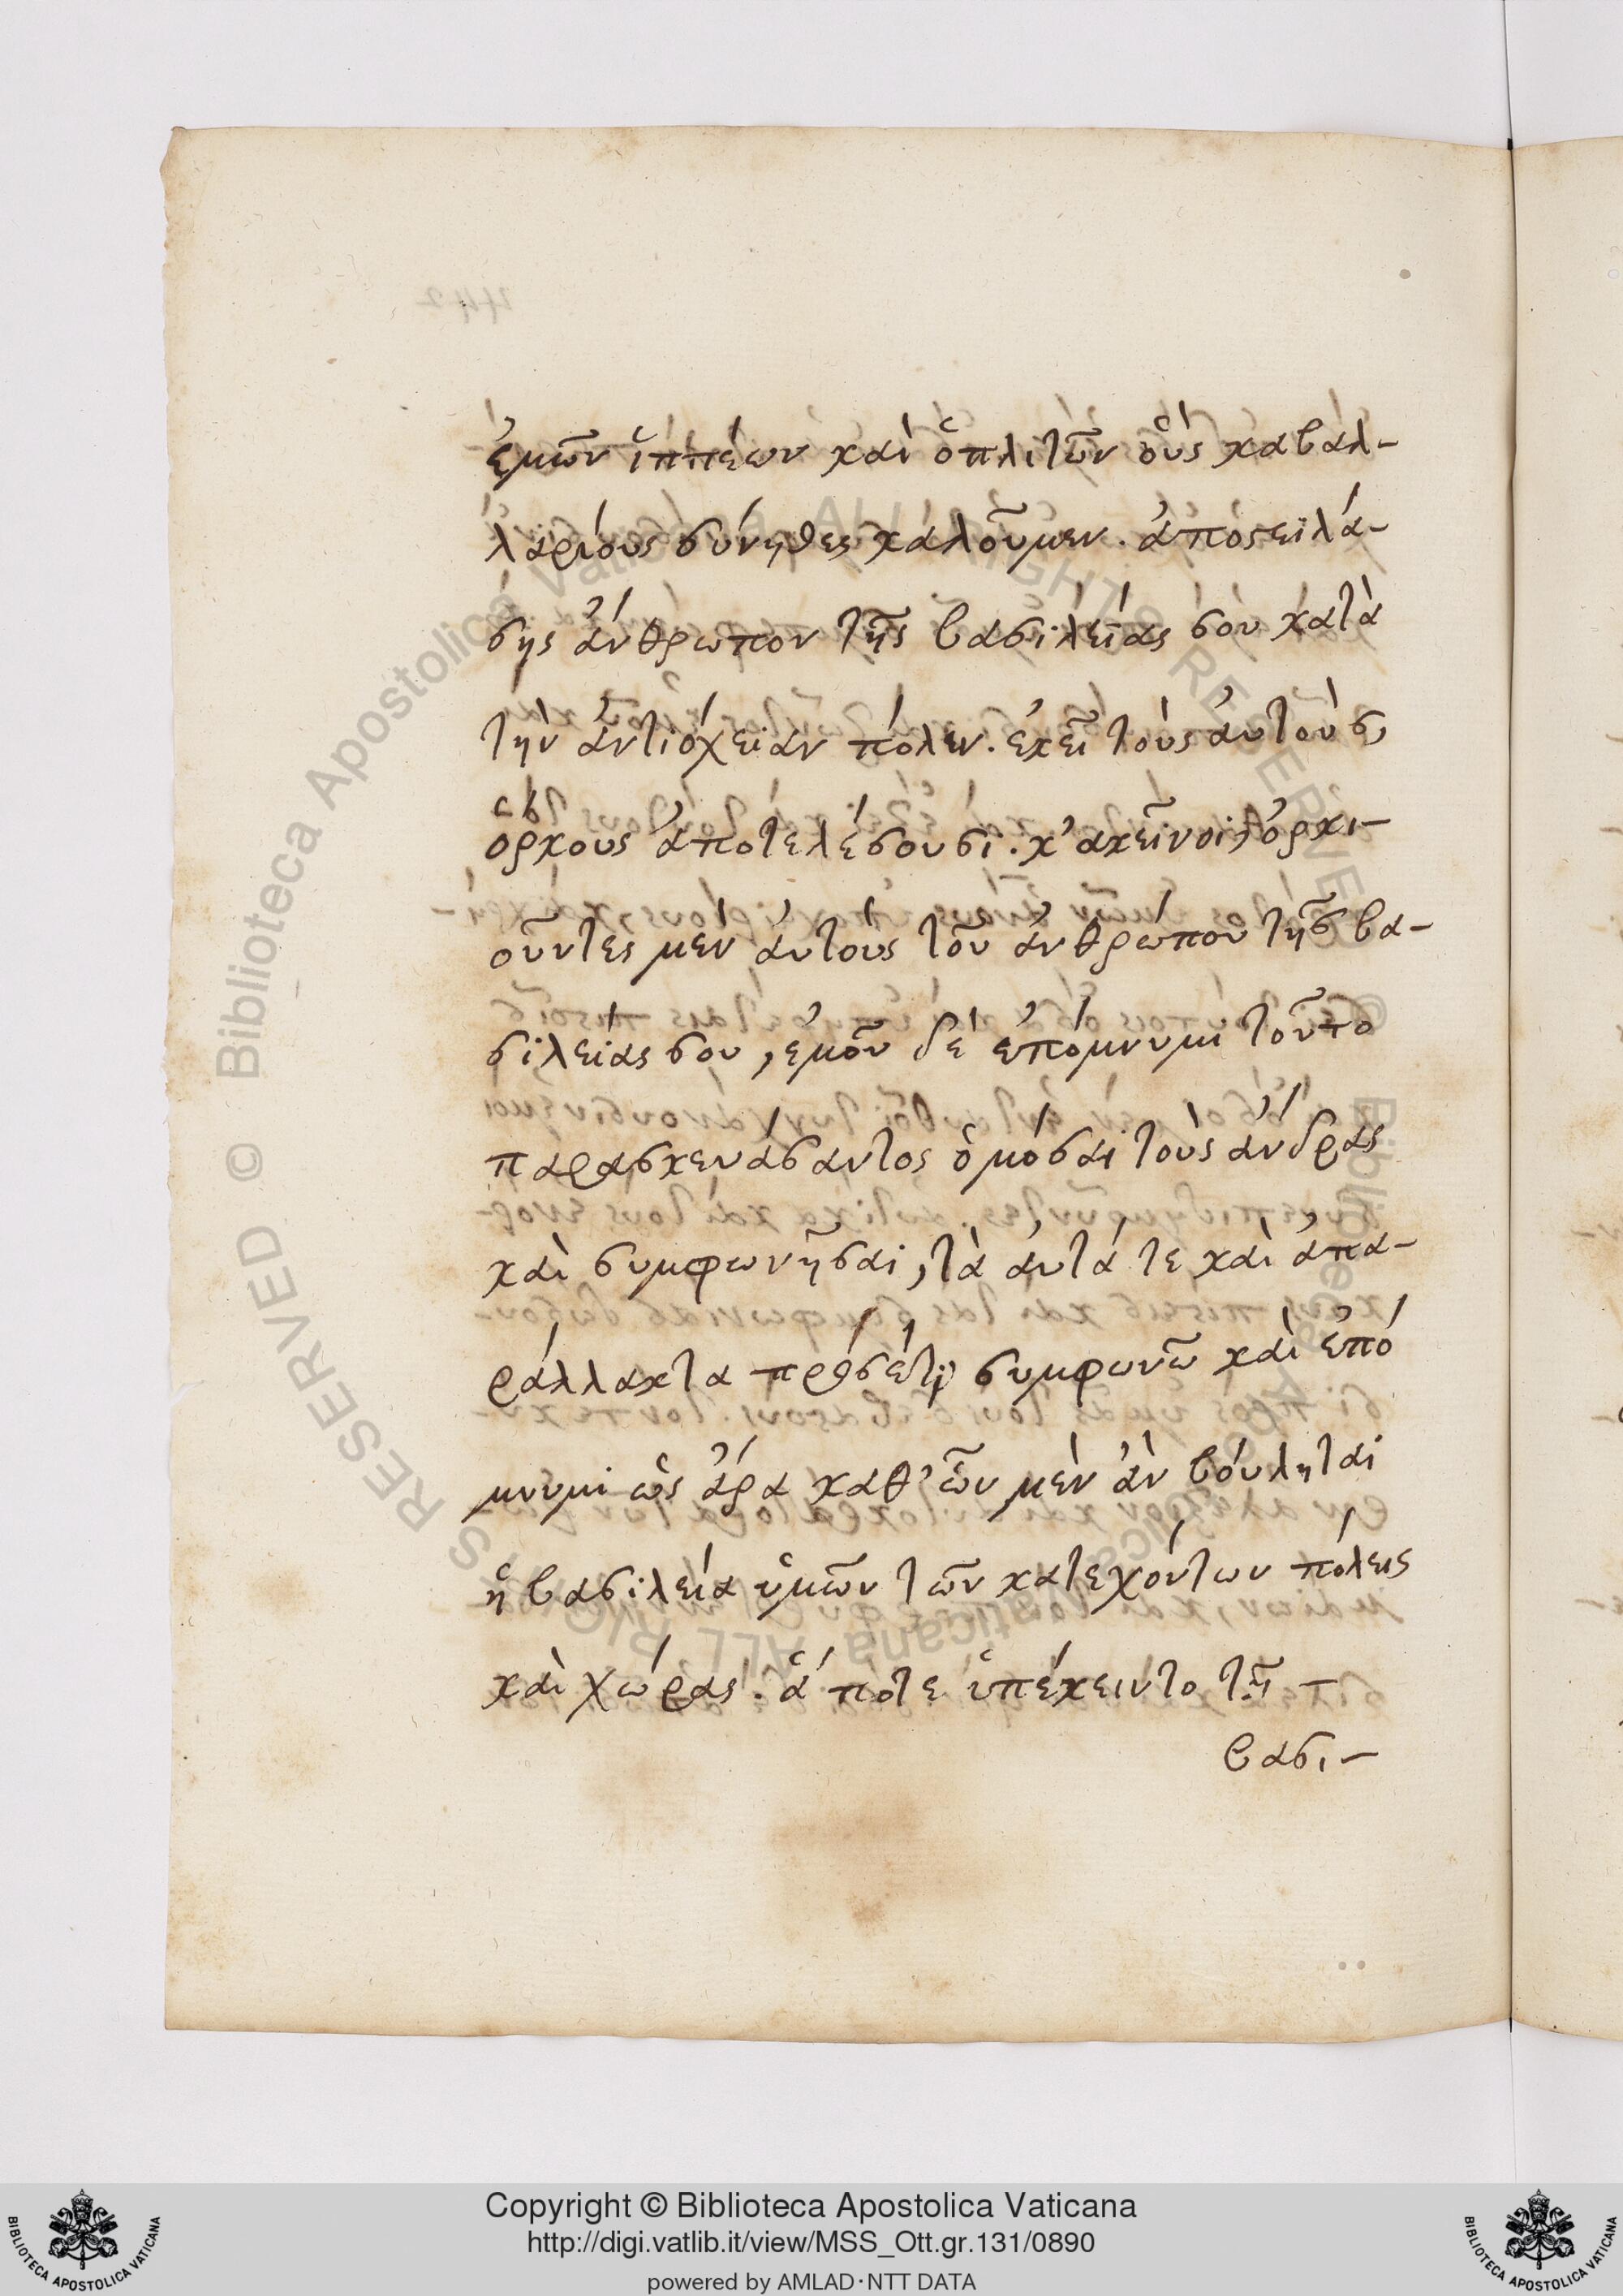 ἐμῶν ἱππέων καὶ ὁπλιτῶν οὓς καβαλ-
λαρίους σύνηθες καλοῦμεν. ἀποστειλά-
σης ἄνθρωπον τῆς βασιλείας σου κατὰ
τὴν ἀντιόχειαν πόλιν. ἐκεῖ τοὺς ἀυτοὺς,
ὅρκους ἀποτελέσουσι. κ᾽ ἀκεῖνοι, ὁρκι-
οῦντες μεν ἀυτους τοῦ ἀνθρώπου τῆς βα-
σιλείας σου, ἐμοῦ δὲ ἐπόμνυμι τοῦτο
παρασκευάσαντος ὀμόσαι τοὺς ἄνδρας
καὶ συμφωνῆσαι, τὰ ἀυτά τε καὶ ἀπα-
ράλλακτα πρὸσέτι, συμφωνῶ καὶ ἐπό
μνυμι ὡς ἄρα καθ᾽ ὧν μὲν ἂν βούληται
ἡ βασιλεία ὑμῶν τῶν κατεχόντων πόλεις
καὶ χώρας. ἅ ποτε ὑπέκειντο τῇ -
βασι-
Copyright © Biblioteca Apostolica Vaticana
http://digi.vatlib.it/view/MSS_Ott.gr.131/0890
powered by AMLAD·NTT DATA
BIBLIOTECA APOSTOLICA VATICANA
BIBLIOTECA APOSTOLICA VATICANA